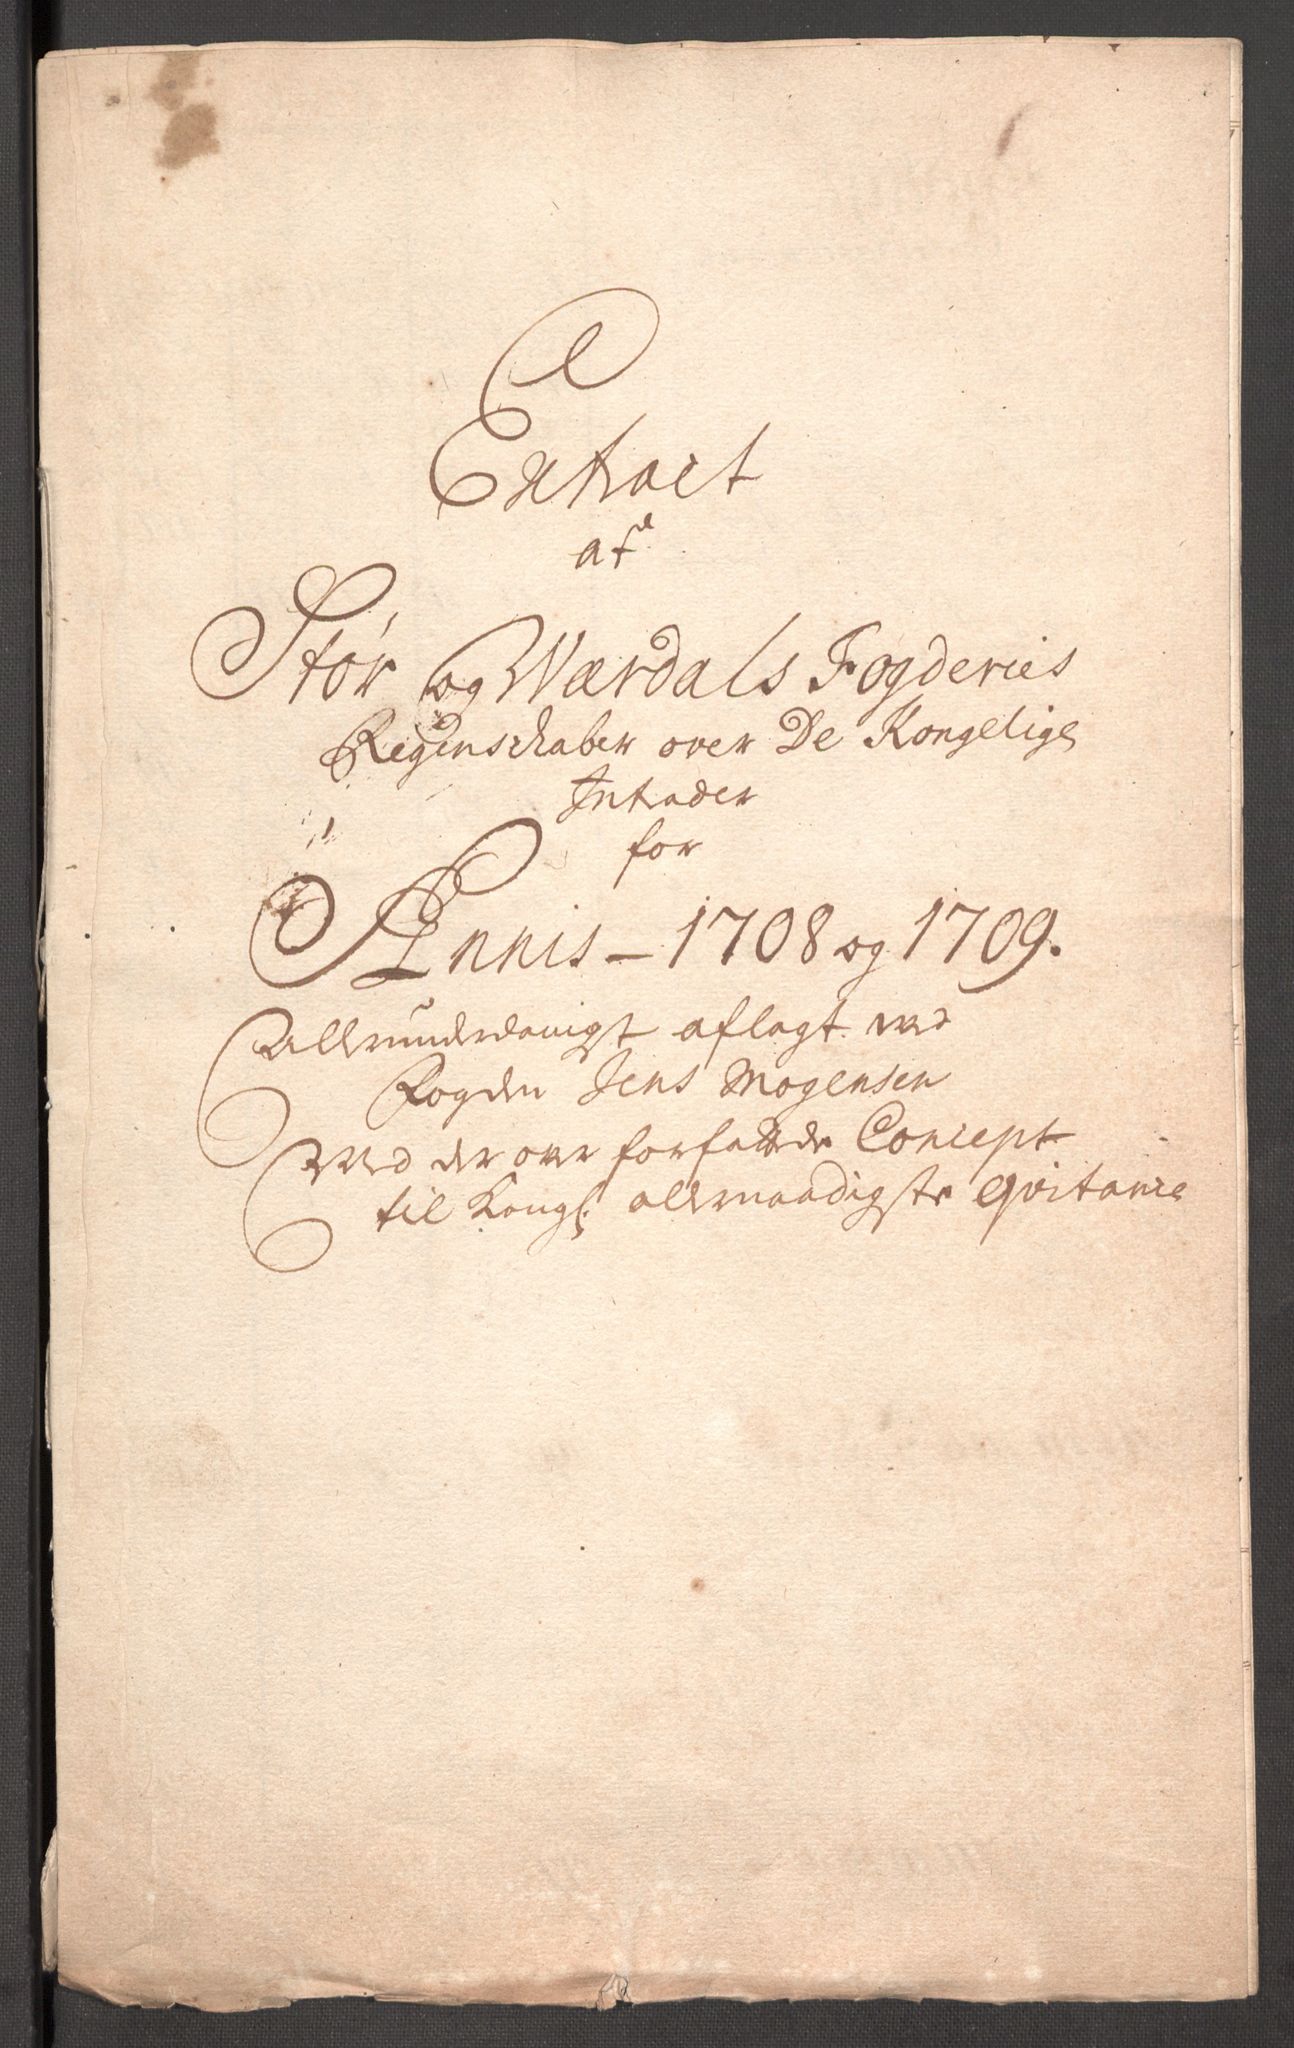 Extract
af
Stör og Værdals Fogderies
Regenschaber over De Kongelige
Intrader
for
Annis - 1708 og 1709.
Allerunderdanigst aflagt ved
Fogden Jens Mogensen
Med der over forfattede Concept
til Kongl: allernaadigste qvitance